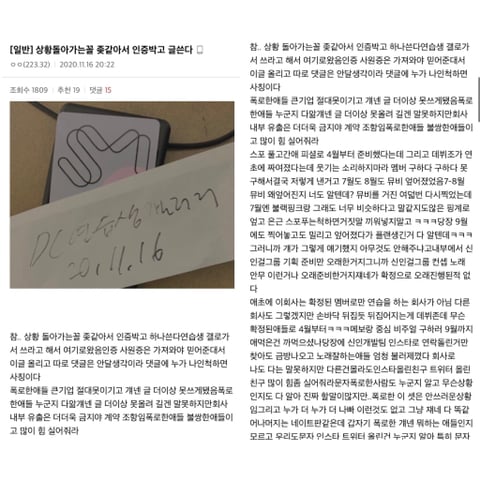 [일반] 상황돌아가는꼴 좆같아서 인증박고 글쓴다
ㅇㅇ(223.32) 2020.11.16 20:22
조회수 1809 추천 19 댓글 15
DC연습생갤러리
20.11.16
참.. 상황 돌아가는꼴 좆같아서 인증박고 하나쓴다연습생 갤로가
서 쓰라고 해서 여기로왔음인증 사원증은 가져와야 믿어준대서
이글 올리고 따로 댓글은 안달생각이라 댓글에 누가 나인척하면
사칭이다
폭로한애들 큰기업 절대못이기고 걔넨 글 더이상 못쓰게됐음폭로
한애들 누군지 다알걔넨 글 더이상 못올려 길겐 말못하지만회사
내부 유출은 더더욱 금지야 계약 조항임폭로한애들 불쌍한애들이
고 많이 힘 실어줘라
참.. 상황 돌아가는꼴 좆같아서 인증박고 하나쓴다연습생 갤로가
서 쓰라고 해서 여기로왔음인증 사원증은 가져와야 믿어준대서
이글 올리고 따로 댓글은 안달생각이라 댓글에 누가 나인척하면
사칭이다
폭로한애들 큰기업 절대못이기고 걔넨 글 더이상 못쓰게됐음폭로
한애들 누군지 다알걔넨 글 더이상 못올려 길겐 말못하지만회사
내부 유출은 더더욱 금지야 계약 조항임폭로한애들 불쌍한애들이
고 많이 힘 실어줘라
스포 풀고간애 피셜로 4월부터 준비했다는데 그리고 데뷔조가 연
초에 짜여졌다는데 웃기는 소리하지마라 멤버 구하다 구하다 못
구해서결국 저렇게 낸거고 7월도 8월도 뮤비 엎어졌었음7-8월
뮤비 왜엎어진지 너도 알텐데? 뮤비를 거진 여덟번 다시찍었는데
7월엔 블랙핑크랑 그래도 너무 비슷하다고 말같지도않은 핑계로
엎고 은근 스포푸는척하면거짓말 끼워넣지말고 ㅋㅋㅋ당장 9월
에도 찍어놓고도 밀리고 엎어졌다가 플랜생긴거 다 알텐데ㅋㅋㅋ
그러니까 걔가 그렇게 얘기했지 아무것도 안해주나고내부에서 신
인걸그룹 기획 준비만 오래한거지그니까 신인걸그룹 컨셉 노래
안무 이런거나 오래준비한거지쟤네가 확정으로 오래진행된적 없
다
애초에 이회사는 확정된 멤버로만 연습을 하는 회사가 아님 다른
회사도 그렇겠지만 손바닥 뒤집듯 뒤집어지는게 데뷔존데 무슨
확정된애들로 4월부터ㅋㅋㅋ메보랑 중심 비주얼 구하러 9월까지
애먹은건 까먹으셨나당장에 신인개발팀 인스타로 연락돌린거만
찾아도 금방나오고 노래잘하는애들 엄청 불러제꼈다 회사로
나도 다는 말못하지만 다른건몰라도인스타올린친구 트위터 올린
친구 많이 힘좀 실어줘라문자폭로한사람도 누군지 알고 무슨상황
인지도 다 알아 진짜 할말이많지만..폭로한 이 셋은 안쓰러운상황
임그리고 누가 더 누가 더 나빠 이런것도 없고 그냥 쟤네 다 똑같
어나머지는 네이트판같은데 갑자기 폭로한 걔넨 뭐하는 애들인지
모르고 우리도문자 인스타 트위터 올린건 누군지 알아 특히 문자